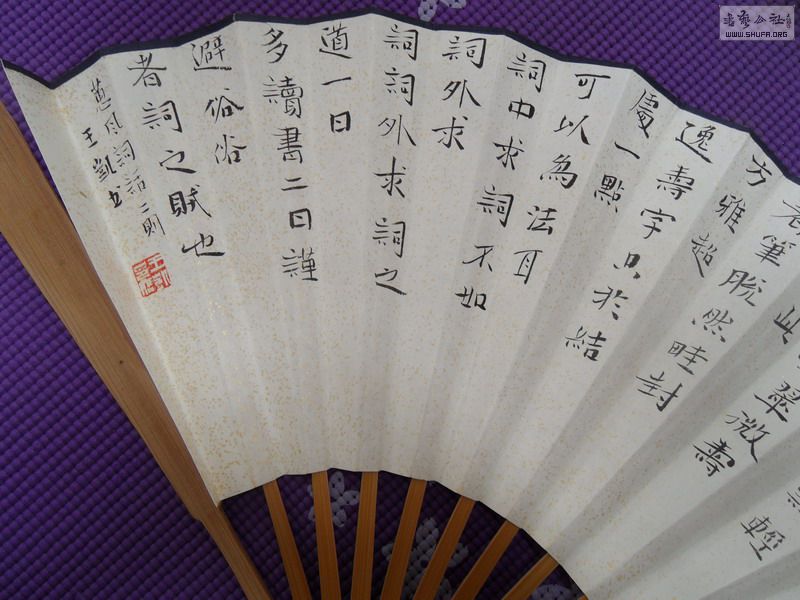 輕
此翠微壽
老筆脫然畦封
方雅超
逸壽字只於結
處一點
可以為法耳
詞中求詞不如
詞外求
詞詞外求詞之
道一日
多讀書二日謹
避俗俗
者詞之賊也
蕙風詞話二則
王凱書
書藝公社
WWW.SHUFA.ORG